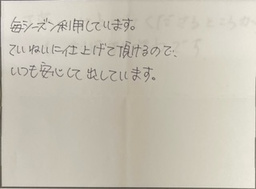 毎シーズン利用しています。
ていねいに仕上げて頂けるので、
いつも安心して出しています。